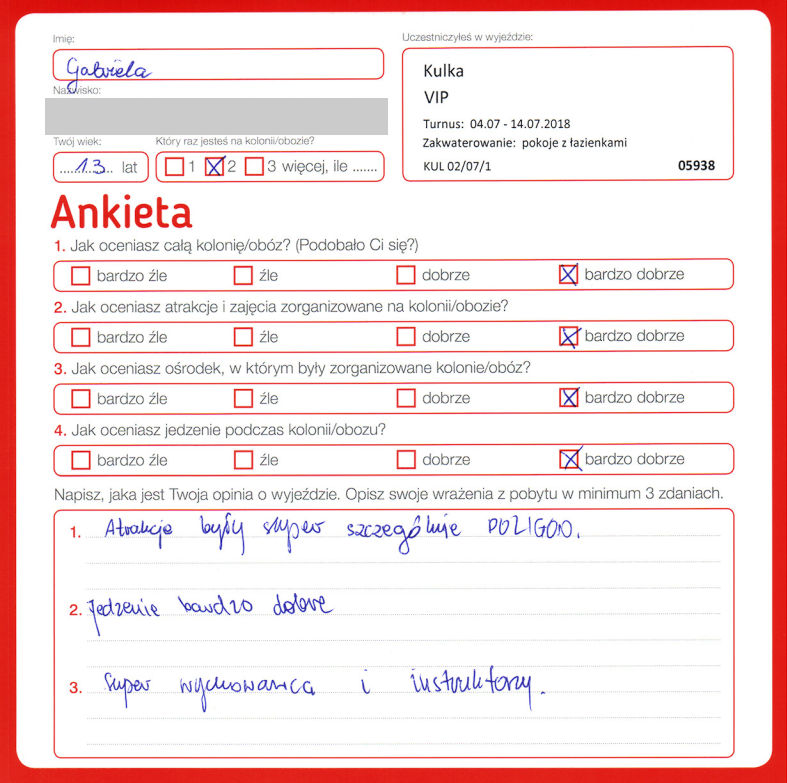 Imię:
Gabriela
Nazwisko:
Twój wiek:
Który raz jesteś na kolonii/obozie?
.....13.. lat
1 2 3 więcej, ile .......
Uczestniczyłeś w wyjeździe:
Kulka
VIP
Turnus: 04.07 - 14.07.2018
Zakwaterowanie: pokoje z łazienkami
KUL 02/07/1 05938
Ankieta
1. Jak oceniasz całą kolonię/obóz? (Podobało Ci się?)
bardzo źle źle dobrze bardzo dobrze
2. Jak oceniasz atrakcje i zajęcia zorganizowane na kolonii/obozie?
bardzo źle źle dobrze bardzo dobrze
3. Jak oceniasz ośrodek, w którym były zorganizowane kolonie/obóz?
bardzo źle źle dobrze bardzo dobrze
4. Jak oceniasz jedzenie podczas kolonii/obozu?
bardzo źle źle dobrze bardzo dobrze
Napisz, jaka jest Twoja opinia o wyjeździe. Opisz swoje wrażenia z pobytu w minimum 3 zdaniach.
1. Atrakcje były super szczególnie POLIGON.
2. Jedzenie bardzo dobre
3. Super wychowawca i instruktorzy.